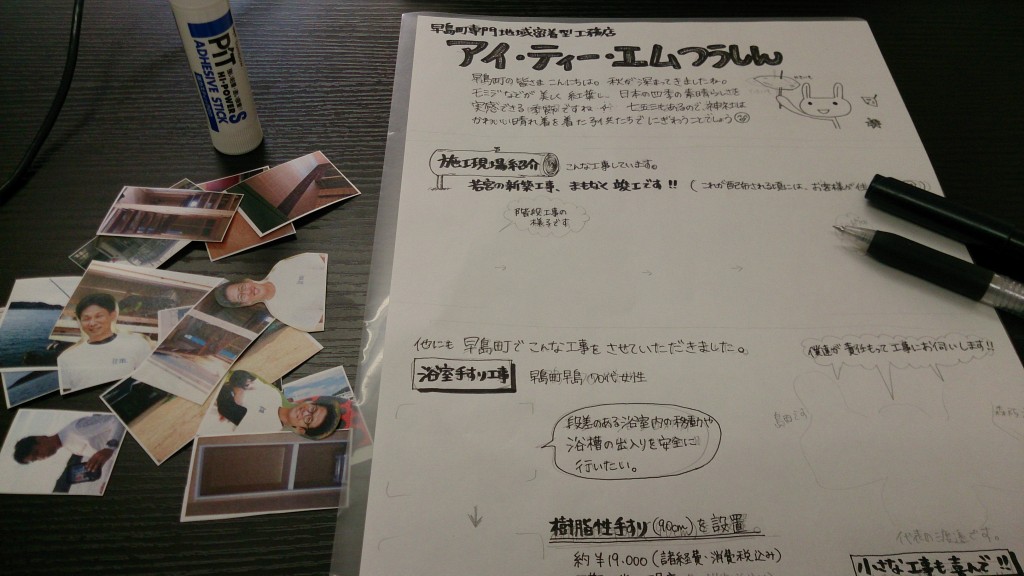 PiT
Hi-POWER S
ADHESIVE STICK
早島町専門地域密着型工務店
アイ・ティー・エムつうしん
早島町の皆さまこんにちは。秋が深まってきましたね。
モミジなどが美しく紅葉し、日本の四季の素晴らしさを
実感できる季節ですね
七五三もあるので、神社は
かわいい晴れ着を着た子供たちでにぎわうことでしょう
施工現場紹介
こんな工事しています。
若宮の新築工事、まもなく竣工です!!
(これが配布される頃には、お客様が住
階段工事の
様子です
他にも早島町でこんな工事をさせていただきました。
浴室手すり工事
早島町早島/90代女性
段差のある浴室内の移動や
浴槽の出入りを安全に
行いたい。
樹脂性手すり(90cm)を設置。
約¥19,000(諸経費・消費税込み)
僕達が責任もって工事にお伺いします!!
代表の渡邉です。
小さな工事も喜んで!!